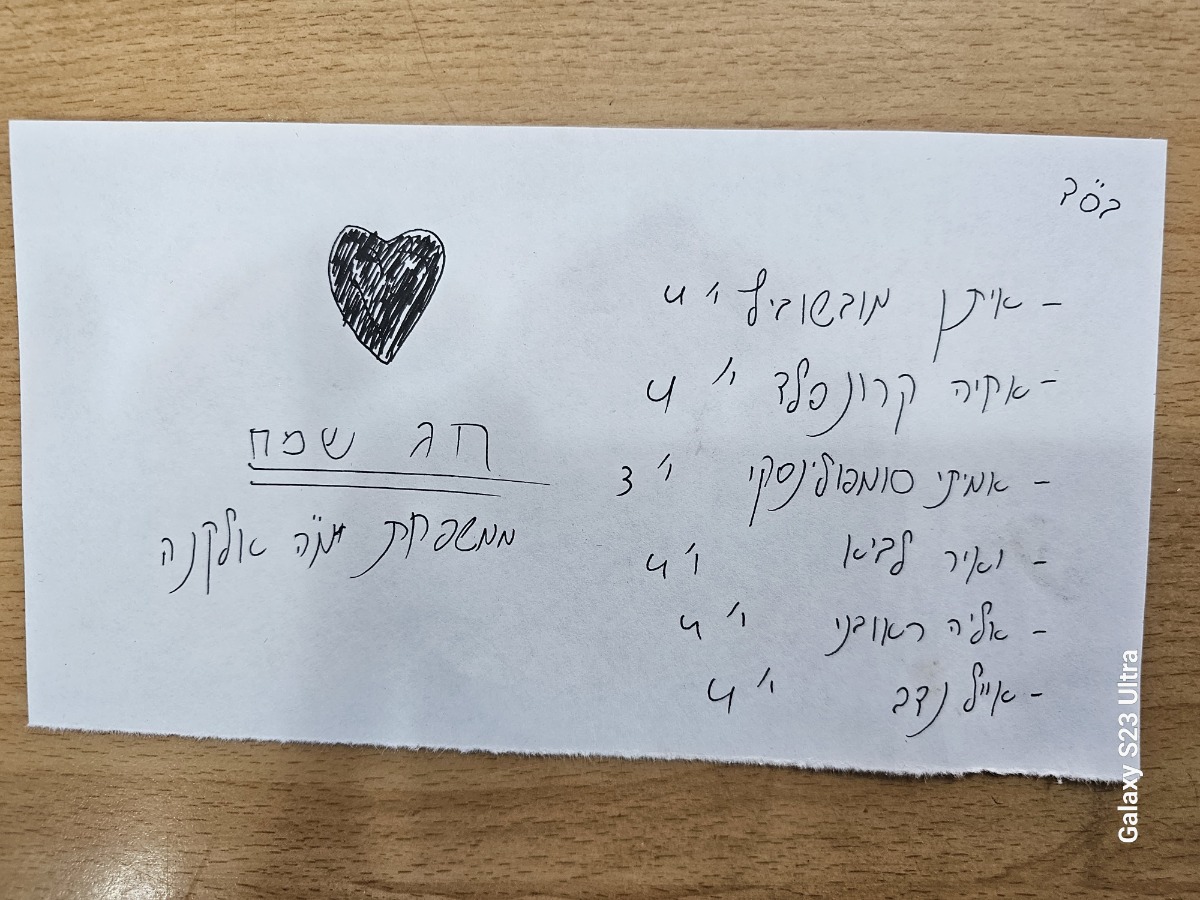 בס"ד
- איתן מובשוביץ י' 4
- אחיה קרונפלד י' 4
- אמיתי סומפולינסקי י' 3
- יאיר לביא י' 4
- אליה ראובני י' 4
- אייל נדב י' 4
חג שמח
ממשפחת אלקנה
Galaxy S23 Ultra